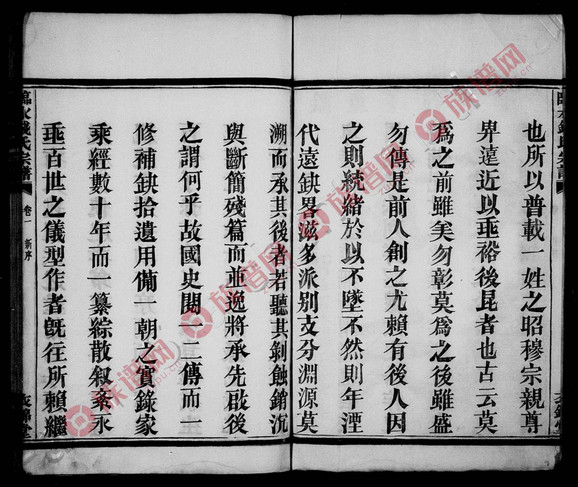 也所以普載一姓之昭穆宗親尊
畀遠近以垂裕後昆者也古云莫
爲之前雖美勿彰莫爲之後雖盛
勿傳是前人創之尤賴有後人因
之則統緒於以不墜不然則年湮
代遠缺畧滋多派別支分淵源莫
溯而承其後者若聽其剝蝕銷沉
與斷簡殘篇而並逸將承先啟後
之謂何乎故國史閱一二傳而一
修補缺拾遺用備一朝之實錄家
乘經數十年而一纂綜散叙紊永
垂百世之儀型作者旣往所賴繼
臨水錢氏宗譜
卷一 新序
族谱网